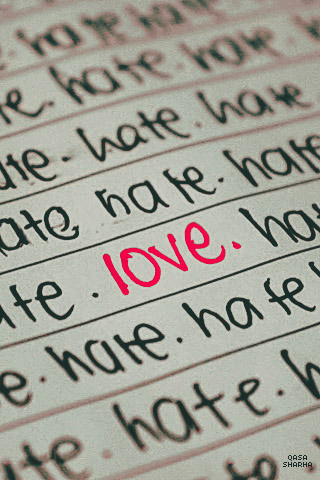 hate hate
te. hate. hate hat
ate. hate. hate.
ate hate. hate
ate. love. hat
e. hate. hate
ate. hate. h
QASA
SHARMA